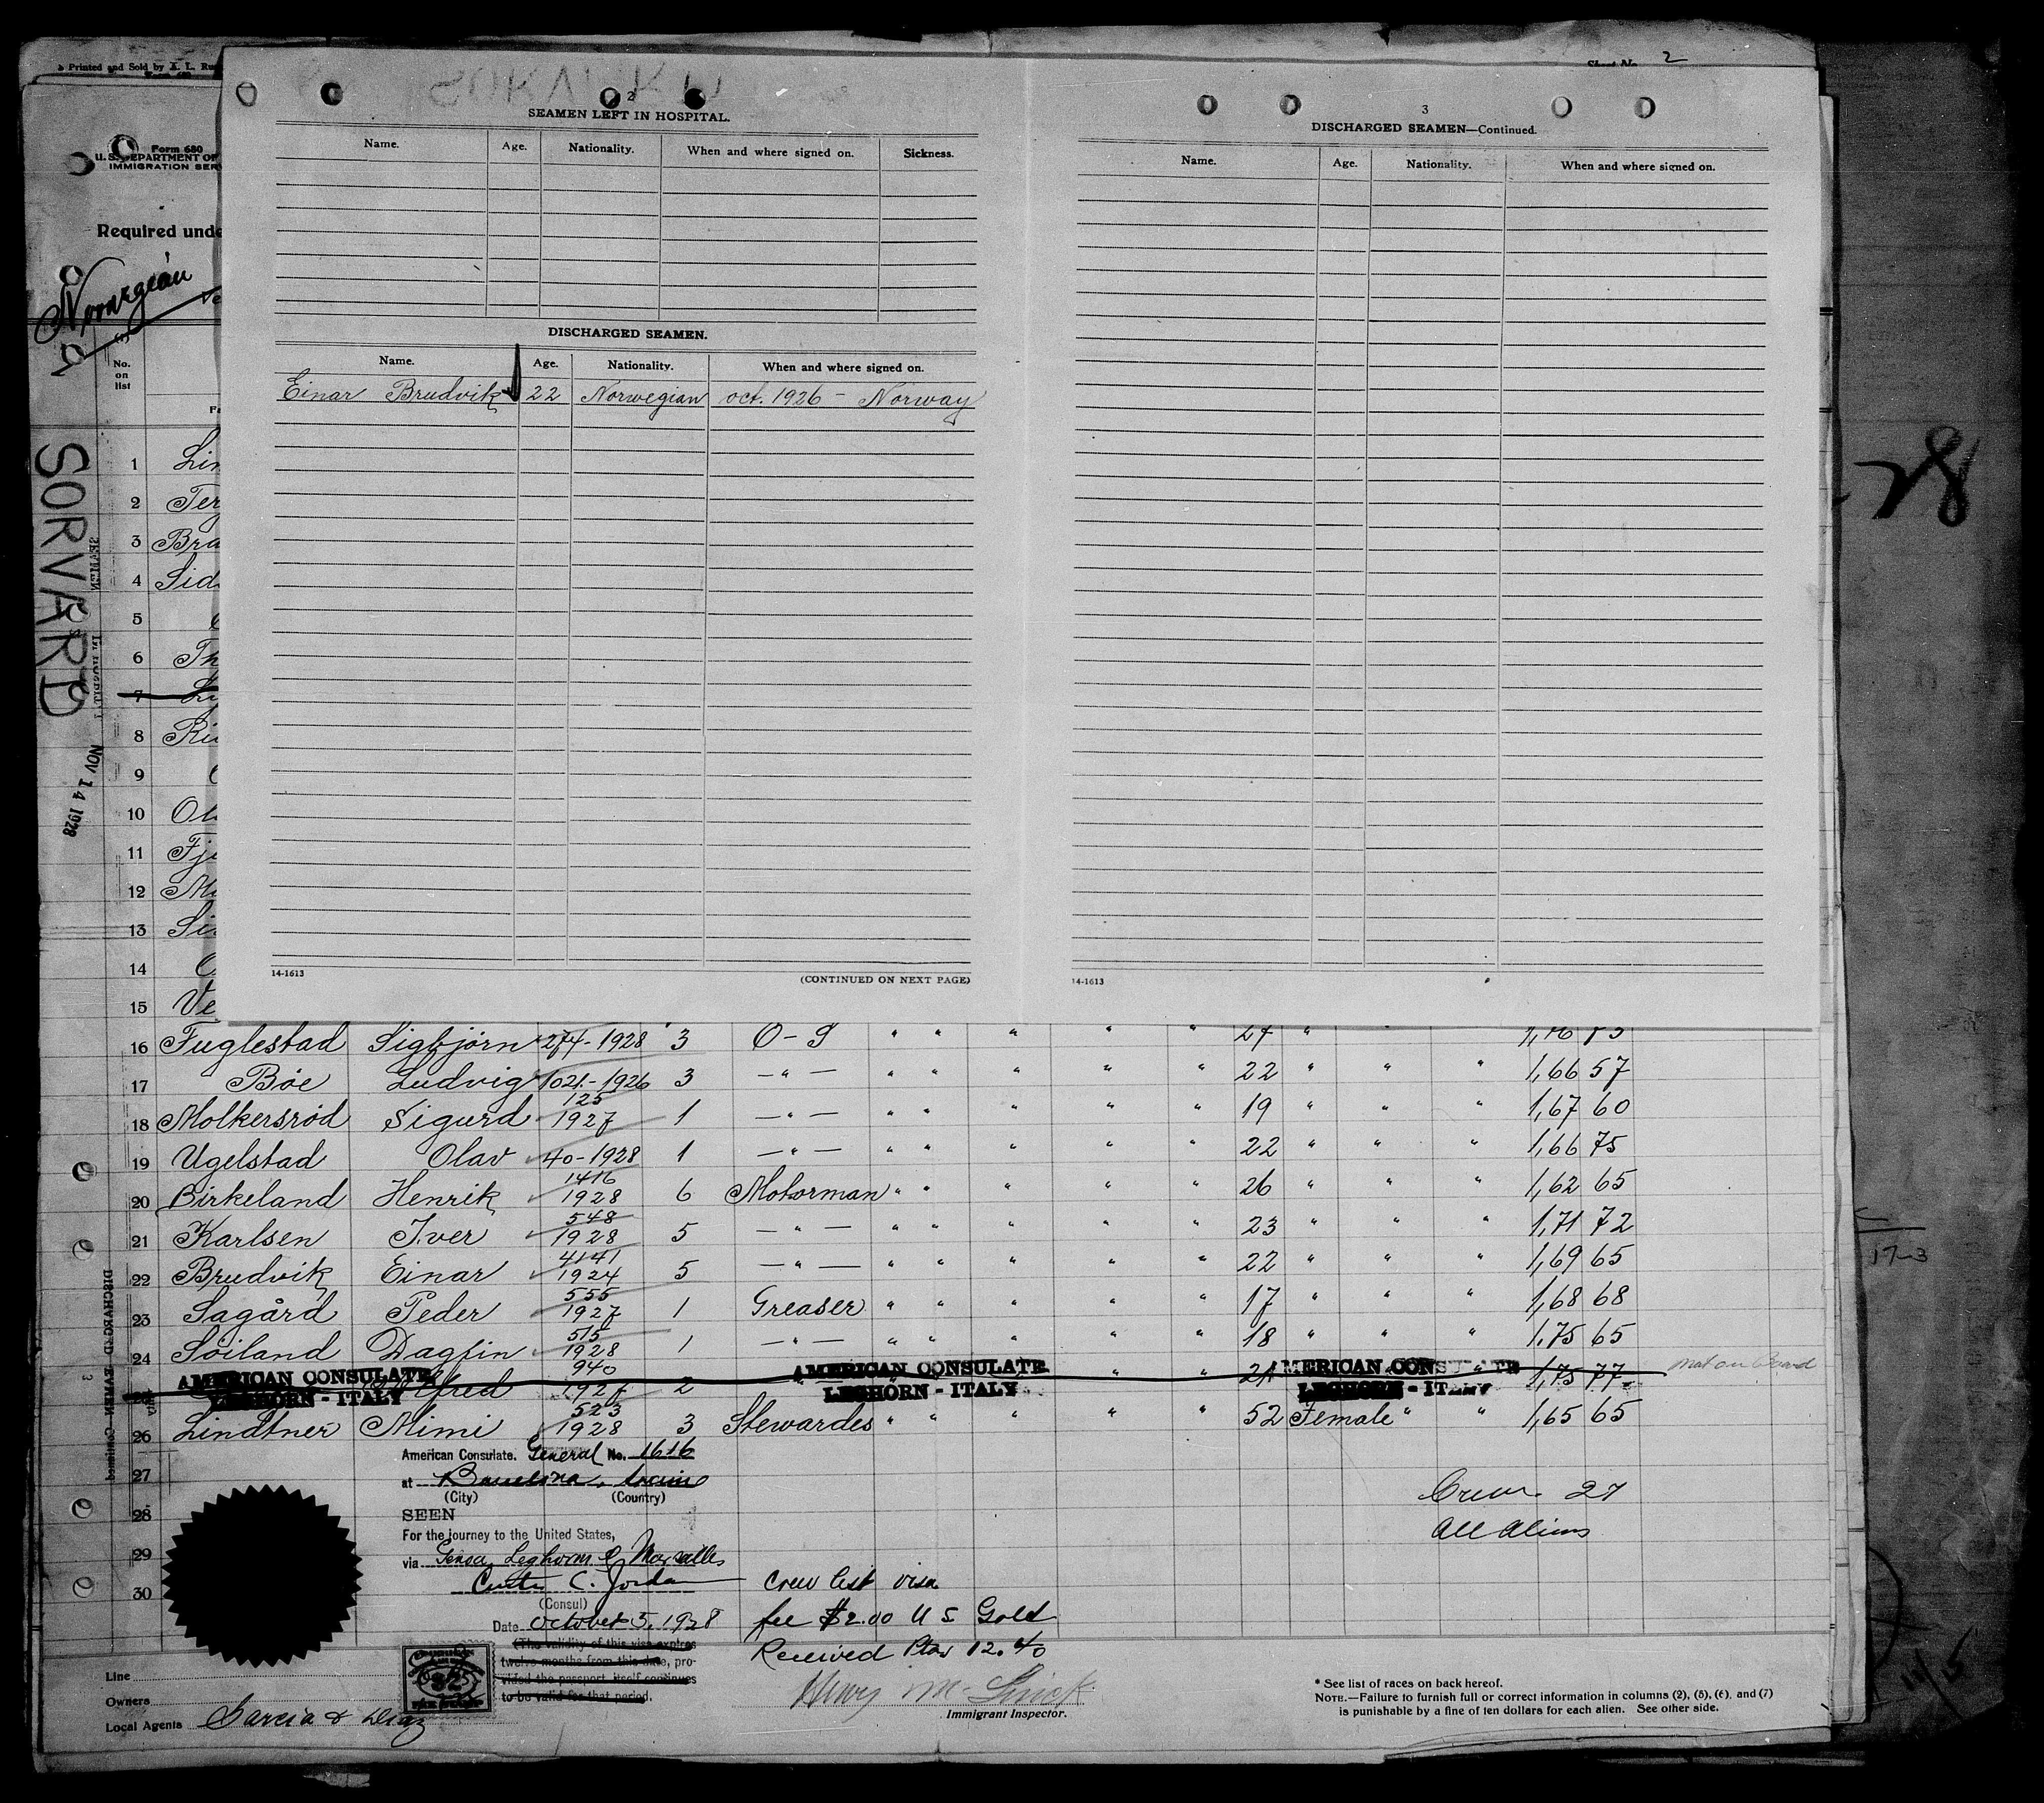 Printed and Sold by A. L.
Sheet No. 2
Form 680
U. S. DEPARTMENT OF
IMMIGRATION SERV
Required unde
Norwegian
No. on list
SORVARD
NOV 14 1928
2
SEAMEN LEFT IN HOSPITAL.
Name. Age. Nationality. When and where signed on. Sickness.
DISCHARGED SEAMEN.
Name. Age. Nationality. When and where signed on.
Einar Brudvik 22 Norwegian oct. 1926 - Norway
14-1613
(CONTINUED ON NEXT PAGE)
3
DISCHARGED SEAMEN—Continued.
Name. Age. Nationality. When and where signed on.
14-1613
28
1 Lin
2 Ter
3 Bra
4 Sid
5
6 Th
7
8
9
10 Ol
11 Fj
12
13
14
15 Ve
16 Fuglestad Sigbjørn 274-1928 3 O-S " " " " " 27 "
17 Bøe Ludvig 1021-1926 3 -"- " " " " " 22 " " " 1,66 57
18 Molkersrød Sigurd 125 1927 1 -"- " " " " " 19 " " " 1,67 60
19 Ugelstad Olav 40-1928 1 -"- " " " " " 22 " " " 1,66 75
20 Birkeland Henrik 1416 1928 6 Motorman " " " " " 26 " " " 1,62 65
21 Karlsen Iver 548 1928 5 -"- " " " " " 23 " " " 1,71 72
22 Brudvik Einar 4141 1924 5 -"- " " " " " 22 " " " 1,69 65
23 Sagård Peder 555 1927 1 Greaser " " " " " 17 " " " 1,68 68
24 Søiland Dagfin 515 1928 1 -"- " " " " " 18 " " " 1,75 65
AMERICAN CONSULATE LEGHORN - ITALY
AMERICAN CONSULATE LEGHORN - ITALY
AMERICAN CONSULATE LEGHORN - ITALY
Alfred 940 1927 2 " " 21 1,75 77 not on board
26 Lindtner Mimi 523 1928 3 Stewardes " " " " " 52 Female " " 1,65 65
27
28
29
30
American Consulate. General No. 1616
at Barcelona, Spain
(City) (Country)
SEEN
For the journey to the United States,
via Genoa, Leghorn & Marseilles
Curtis C. Jordan
(Consul)
Date October 5, 1928
(The validity of this visa expires
twelve months from this date, pro-
vided the passport itself continues
to be valid for that period.
Crew 27
All Aliens
Crew list visa
fee $2.00 U S Gold
Received Ptas 12.40
Immigrant Inspector.
Line
Owners
Local Agents Garcia & Diaz
* See list of races on back hereof.
NOTE.—Failure to furnish full or correct information in columns (2), (5), (6), and (7)
is punishable by a fine of ten dollars for each alien. See other side.
17-3
11/15